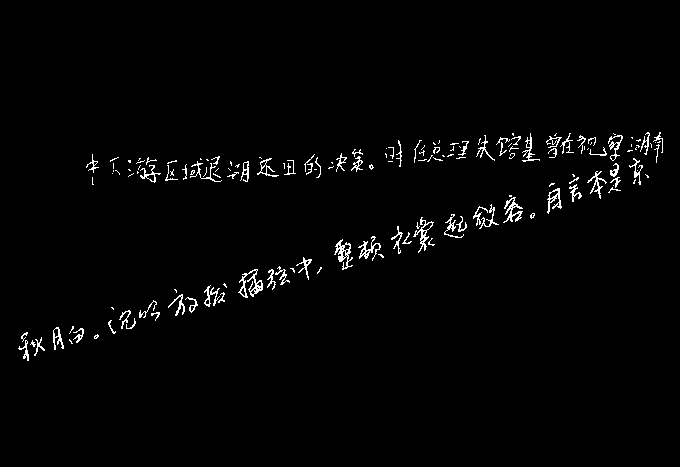 中下游区域退湖还田的决策。时任总理朱镕基曾在视察湖南
秋月白。沉吟放拨插弦中，整顿衣裳起敛容。自言本是京